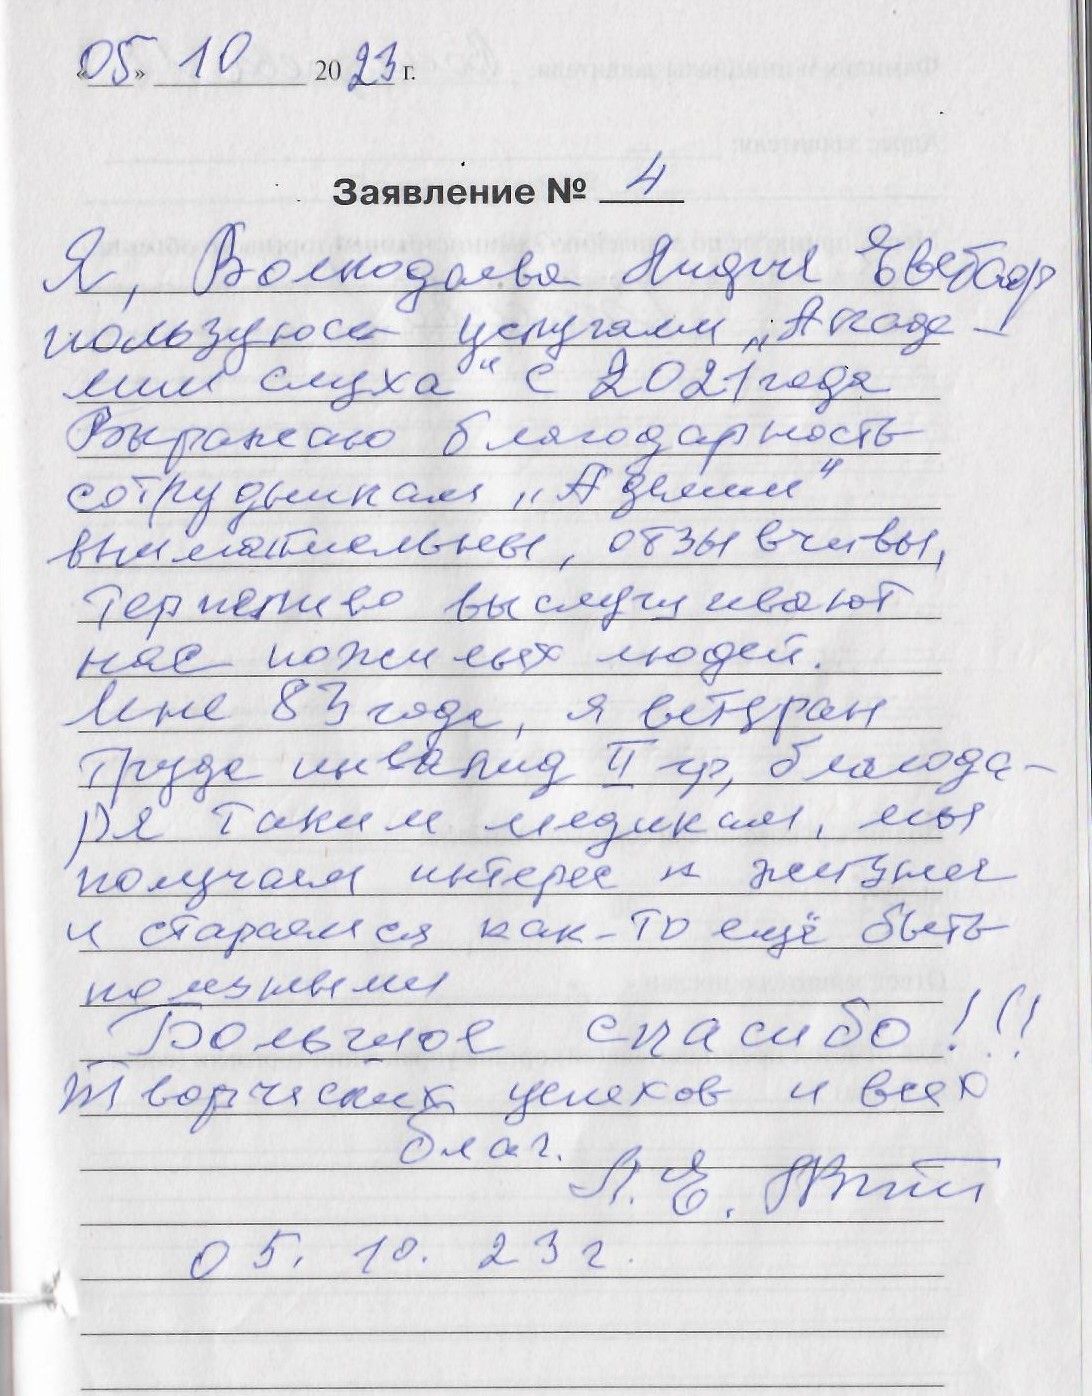 «05» 10 2023 г.
Заявление № 4
Я, Волкодаева Лидия
пользуюсь услугами „Акаде-
мии слуха" с 2021 года
Выражаю благодарность
сотрудникам „Адемии"
внимательны, отзывчивы,
терпеливо выслушивают
нас пожилых людей.
Мне 83 года, я ветеран
труда инвалид II гр, благода-
ря таким медикам, мы
получаем интерес к жизни
и стараемся как-то ещё быть
полезными
Большое спасибо!!!
Творческих успехов и всех
благ.
Л. Е.
05. 10. 23 г.